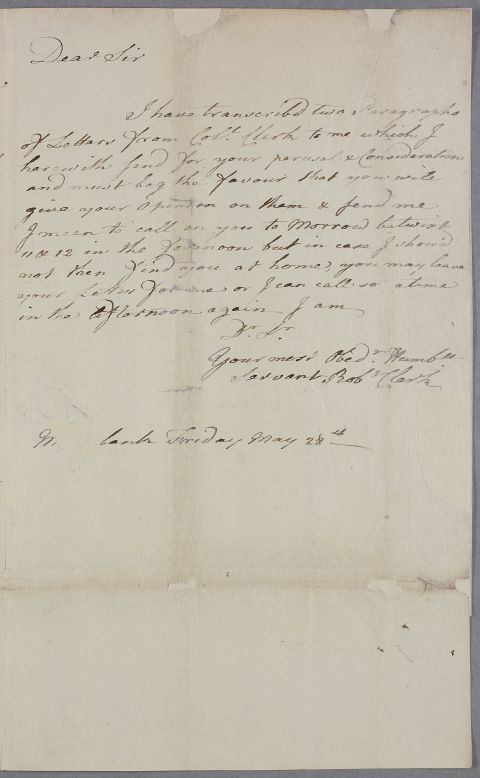 Dear Sir
I have transcribd two Paragraphs
of Letters from Colt. Clerk to me which I
herewith send for your perusal & Consideration
and must beg the favour that you will
give your opinion on them & send me
I mean to call on you to Morrow betwixt
11 & 12 in the forenoon but in case I should
not then find you at home, you may leave
your Letter for me or I can call so atime
in the afternoon again I am
Dr. Sr.
Your most Obedt. Humble
Servant Robt. Clerk
Friday May 28th